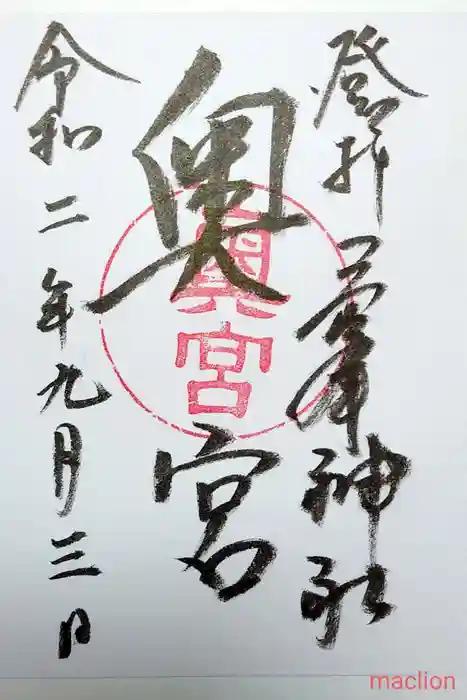 登拝 神社
奥宮
奥宮
令和二年九月三日
maclion